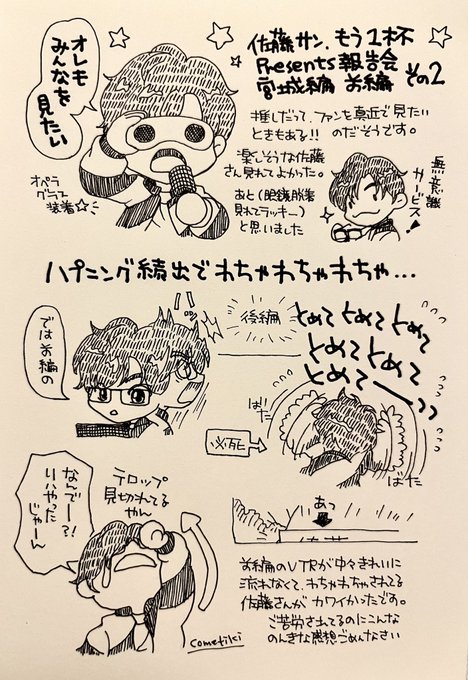 佐藤サン、もう1杯
Presents 報告会
宮城編 前編 その2
オレも
みんなを
見たい
オペラ
グラス
装着☆
推しだって、ファンを真近で見たい
ときもある!! のだそうです。
楽しそうな佐藤
さん見れてよかった。
あと(眼鏡脱着
見れてラッキー)
と思いました
無意識
サービス!
ハプニング続出でわちゃわちゃわちゃ...
では前編の
後編
とめてとめてとめて
とめてとめて
とめてーーっっ
ばた
ばた
必死
なんでー?!
リハやった
じゃーん
テロップ
見切れてる
やん
あっ
前編のVTRが中々きれいに
流れなくて、わちゃわちゃされてる
佐藤さんがカワイかったです。
ご苦労されてるのにこんな
のんきな感想ごめんなさい
cometiki